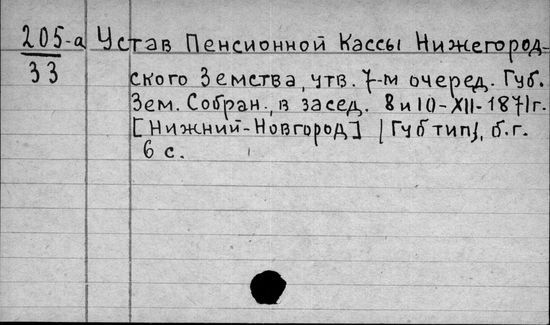 205-а Устав Пенсионной Кассы Нижегород-
33
ского Земства, утв. 7-м очеред. Губ.
Зем. Собран., в засед. 8 и 10-XII-1871г.
[Нижний-Новгород] /Губ тип/, б.г.
6 с.